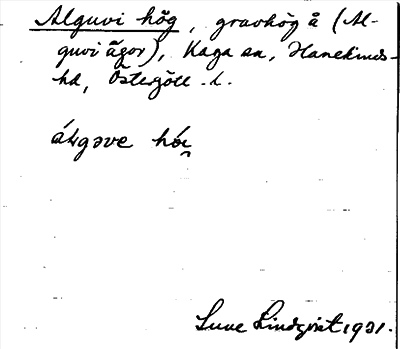 Alguvi hög, gravhög å (Al-
guvi ägor), Kaga sn, Hanekinds-
hd, Östergötl. l.
Sune Lindqvist 1921.